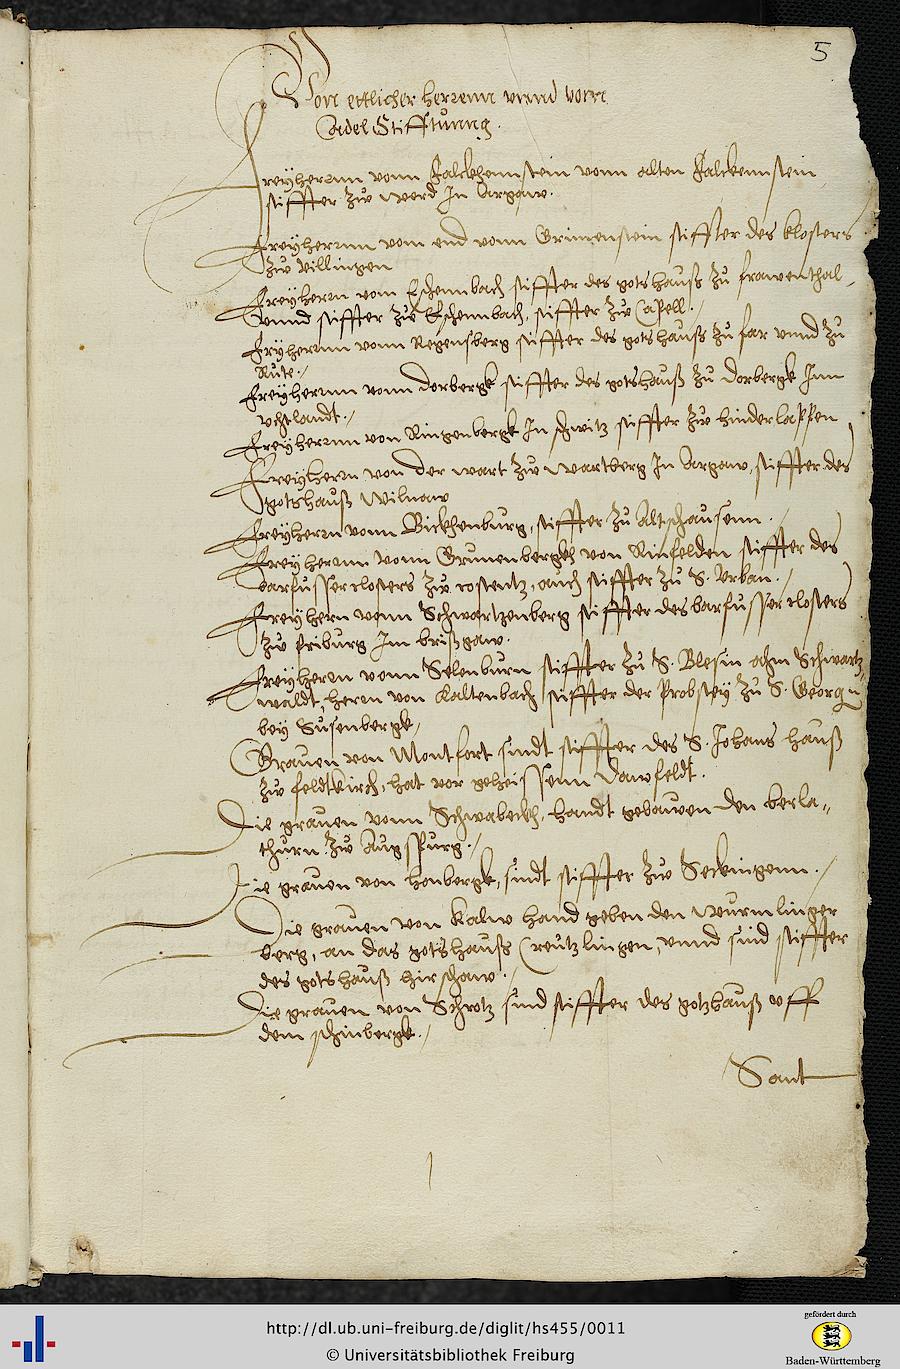 5
Von ettlicher herrenn vnnd vom
Adel Stifftunng.
Freyherrnn vonn Falckhennstein vonn alten Falckennstein
stiffter zůw Werd In Argaw.
Freyherrnn vom end vonn Grimenstein stiffter des klosters
zůw Villingen
Freyherrn vom Eschennbach stiffter des gotshauß zů frawenthal
vnnd stiffter zůw Eschennbach, stiffter zůw Capell.
Fryherrnn vonn Regensberg stiffter des gotshauß zů far vnnd zů
Růte.
Freyherrnn vonn dorbergk stiffter des gotshauß zů dorbergk Inn
vchtlandt.
Freyherrnn von Ringenbergk In schwitz stiffter zůw hinderlappen
Freyherrn von der wart zůw wartberg In Argaw, stiffter des
gotshauß Wilnaw
Freyherrn vonn Bickhenburg, stiffter zů Altschausenn.
Freyherrnn vonn Grunenbergkh von Rinfelden stiffter des
barfusserclosters zůw costentz, auch stiffter zů S. Urban.
Freyhern vonn Schwartzenberg stiffter des barfusser closters
zůw friburg Im brißgaw.
Freyherrn vonn Selenburn stiffter zů S. Blesin ahm Schwartz-
waldt, herrn von Kaltenbach stiffter der Probstey zů S. Georgn
bey Sůsenbergk,
Grauen von Montfort sindt stiffter des S. Johans hauß
zůw feldtkirch, hat vor geheissenn Dawfeldt.
Die grauen vonn Schwabeckh, handt gebauwen den berla-
thůrn zůw Augspurg.
Die grauen von honbergk, sindt stiffter zůw Seckingenn.
Die grauen von Kalw hand geben den Wurmlinger
berg, an das gotshauß Creützlingen, vnnd sind stiffter
des gotshauß hirschaw.
Die grauen von Schrotz sind stiffter des gotzhauß vff
dem schinbergk.
Sant
http://dl.ub.uni-freiburg.de/diglit/hs455/0011
© Universitätsbibliothek Freiburg
gefördert durch
Baden-Württemberg